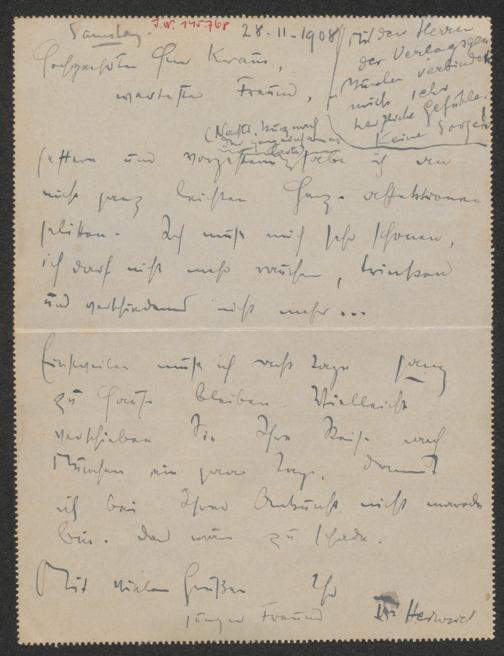 J.N. 145.768
Samstag. 28.II.1908
Mit den Herren
der Verlagsgen.
München verbinden
mich sehr
herzliche Gefühle.
Keine Sorgen!
Hochgeehrter Herr Kraus,
wertester Freund,
(Nachts, kurz nach
der gemeinsamen
gestern und vorgestern habe ich an
nicht ganz leichten Herz-affektionen
gelitten. Ich muß mich sehr schonen,
ich darf nicht mehr rauchen, trinken
und verschiedenes nicht mehr...
Einstweilen muß ich acht Tage ganz
zu Hause bleiben Vielleicht
verschieben Sie Ihre Reise nach
München ein paar Tage, damit
ich bei Ihrer Ankunft nicht marode
bin. Das wäre zu schade.
Mit vielen Grüßen Ihr
junger Freund Heinrich